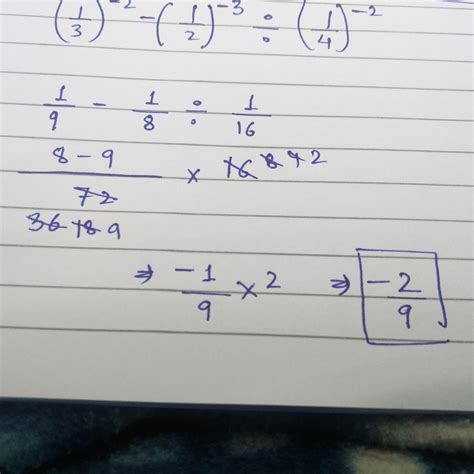 (1/3)^-2 - (1/2)^-3 ÷ (1/4)^-2
1/9 - 1/8 ÷ 1/16
(8 - 9)/72 × 16 8 4 2
36 18 9
⇒ -1/9 × 2 ⇒ -2/9